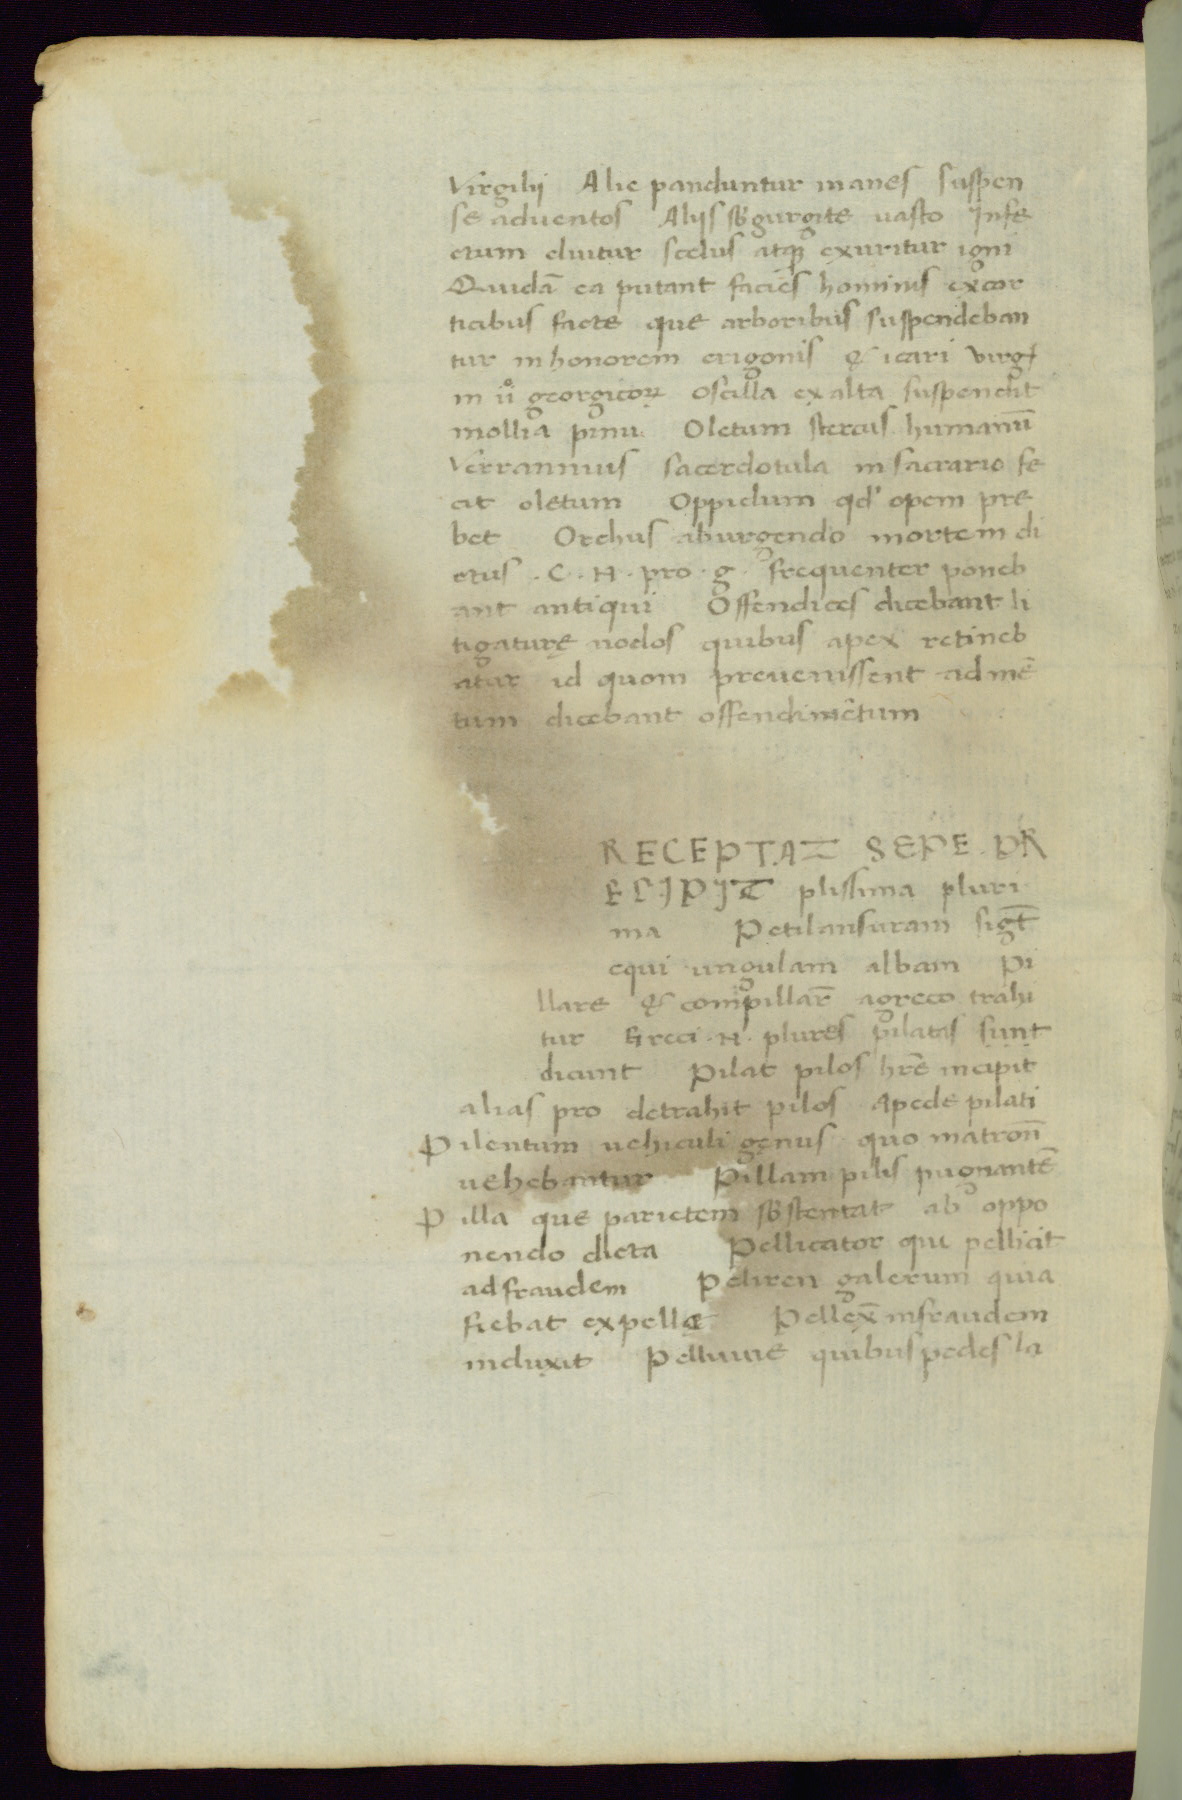 Virgilij Alie panduntur inanes suspen
se aduentos Alijs sb gurgite uasto Infe
ctum eluitur scelus atq; exuritur igni
Quidã ea putant facies hominis ex cor
ticibus facte que arboribus suspendeban
tur in honorem erigonis & icari Virgi
in uͦ georgicoꝝ Oscilla ex alta suspendũt
mollia pinu Oletum stercus humanũ
Verranniuis sacerdotula in sacrario fe
cit oletum Oppidum qd' opem pre
bet Orchus ab urgendo mortem di
ctus . C . N . pro . g . frequenter poneb
ant antiqui Offendices dicebant li
tigaturę nodos quibus apex retineb
atur id quom preuenissent ad mẽ
tum dicebant offendimẽtum
RECEPTAT SEPE PR
ECIPIT plissima pluri
ma Petilansuram sigt̃
equi ungulam albam Pi
llare & compillar̃ a greco trahi
tur Greci . N . plures pilatas sunt
dicunt Pilat pilos hr̃e incipit
alias pro detrahit pilos Apede pilati
Pilentum uehiculi genus quo matroñ
uehebantur Pillam pilis pugnantẽ
Pilla que parietem sbstentat ab oppo
nendo dicta Pellicator qui pellicit
ad fraudem Peliren galerum quia
fiebat ex pelle Pellex̃ in fraudem
induxit Pelluuie quibus pedes la